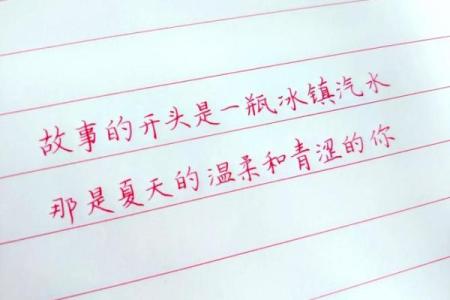 故事的开头是一瓶冰镇汽水
那是夏天的温柔和青涩的你